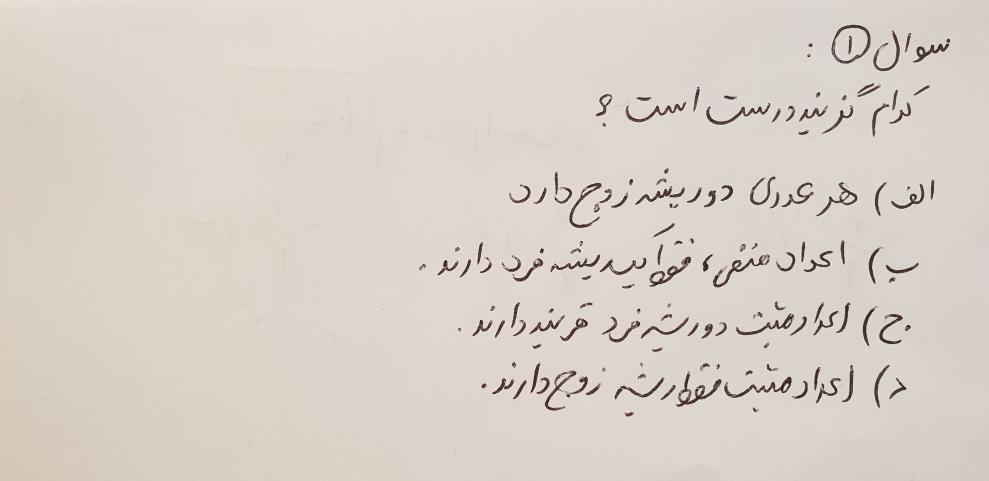 سوال ۱ :
کدام گزینه درست است ؟
الف) هر عددی دو ریشه زوج دارد
ب) اعداد منفی، فقط یک ریشه فرد دارند.
ج) اعداد مثبت دو ریشه فرد قرینه دارند.
د) اعداد مثبت فقط ریشه زوج دارند.